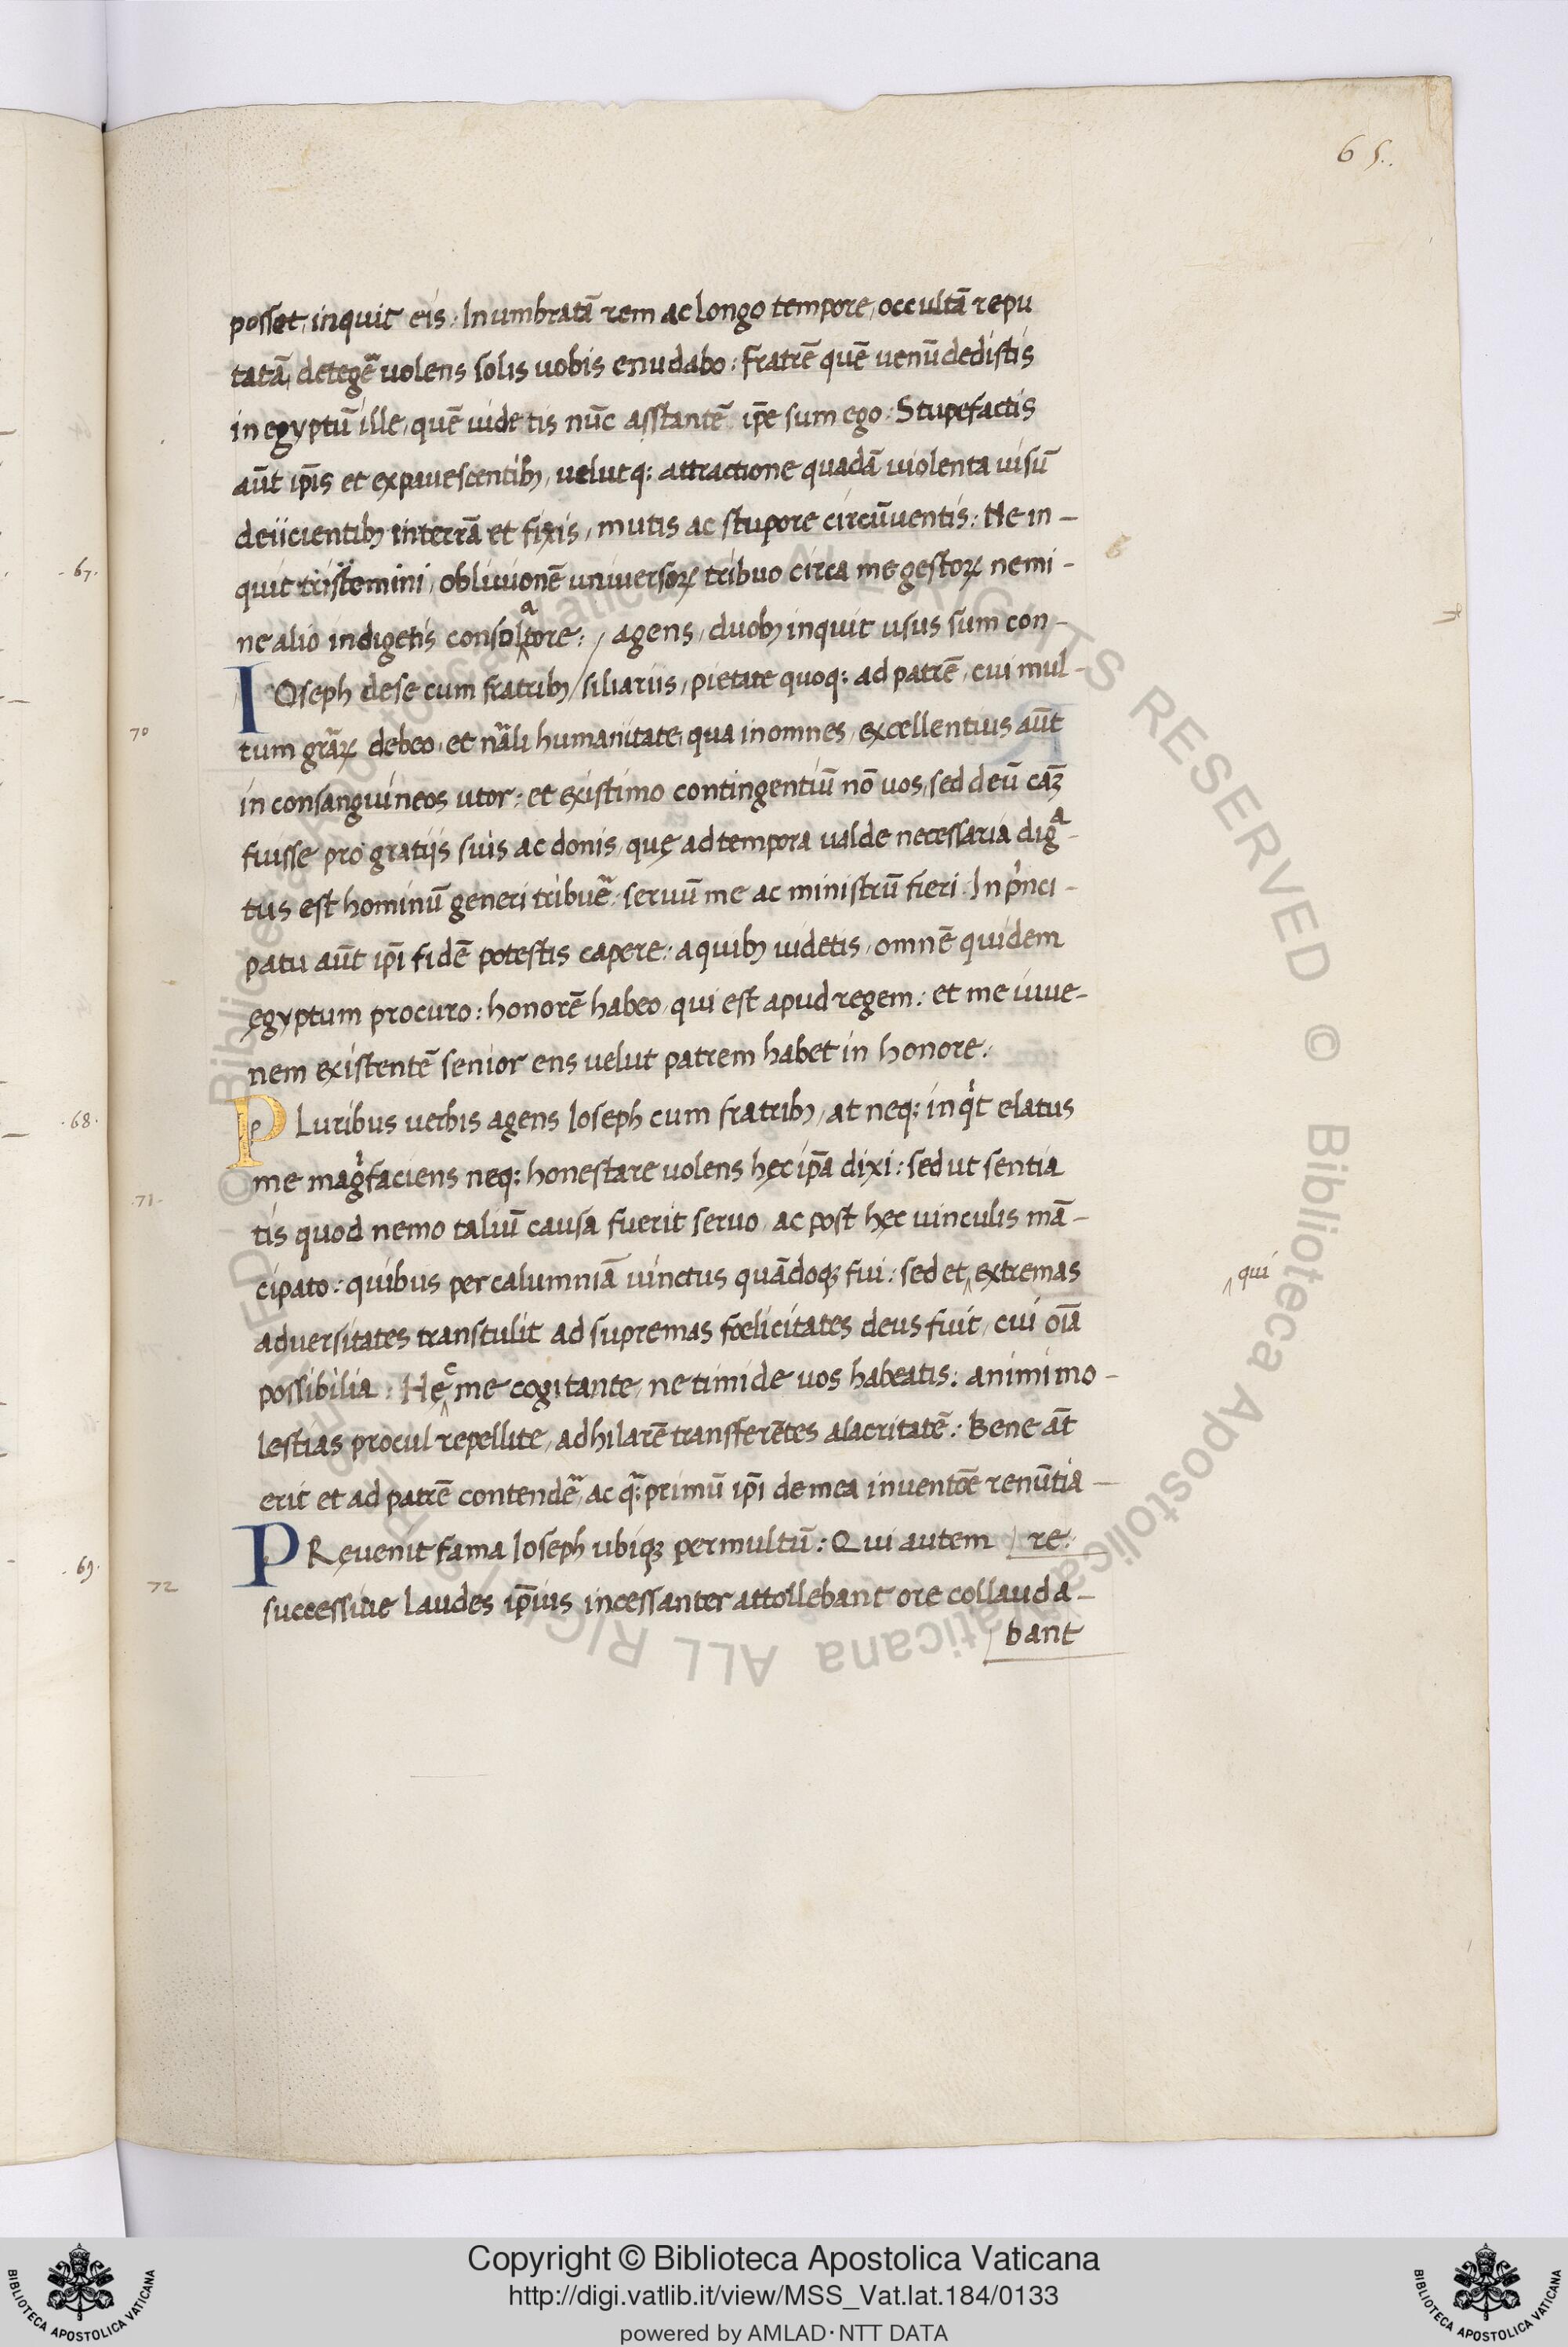 65.
posset, inquit eis: Inumbratã rem ac longo tempore, occultã repu
tatã, detegẽ uolens solis uobis enudabo: fratrẽ quẽ uenũdedistis
in egyptũ ille, quẽ uidetis nũc asstantẽ ip̃e sum ego: Stupefactis
aũt ip̃is et expauescentibꝫ, velut q: attractione quadã uiolenta uisũ
deiicientibꝫ in terrã et fixis, mutis ac stupore circũuentis: Ne in-
.67. quit tristemini, obliuionẽ universoꝝ tribuo circa me gestoꝝ nemi-
ne alio indigetis consolatore: / agens, duobꝫ inquit usus sum con-
IOseph de se cum fratribꝫ / siliariis, pietate quoq: ad patrẽ, cui mul-
70 tum gr̃aꝝ debeo, et nãli humanitate, qua in omnes, excellentius aũt
in consanguineos utor: et existimo contingentiũ nõ uos, sed deũ cãꝫ
fuisse pro gratiis suis ac donis, quę ad tempora ualde necessaria dig^a-
tus est hominũ generi tribuẽ: seruũ me ac ministrũ fieri. In pⁱnci-
patu aũt ip̃i fidẽ potestis capere: a quibꝫ uidetis, omnẽ quidem
ęgyptum procuro: honorẽ habeo, qui est apud regem: et me iuue-
nem existentẽ senior ens velut patrem habet in honore:
.68. PLuribus uerbis agens Ioseph cum fratribꝫ, at neq: inqⁱt elatus
me magⁱfaciens neq: honestare uolens hęc ip̃a dixi: sed ut sentia
.71. tis quod nemo taliũ causa fuerit seruo, ac post hęc uinculis mã-
cipato: quibus per calumniã uinctus quãdoqꝫ fui: sed et ‸ extremas ‸ qui
adversitates transtulit ad supremas fœlicitates deus fuit, cui oĩa
possibilia: Hęc me cogitante, ne timide uos habeatis: animi mo-
lestias procul repellite, ad hilarẽ transferẽtes alacritatẽ: Bene ãt
erit et ad patrẽ contendẽ, ac q̃: primũ ip̃i de mea inuentõe renũtia-
.69. PRęuenit fama Ioseph ubiqꝫ permultũ: Qui autem / re:
72 successiue laudes ip̃ius incessanter attollebant ore collauda-
bant
Copyright © Biblioteca Apostolica Vaticana
http://digi.vatlib.it/view/MSS_Vat.lat.184/0133
powered by AMLAD·NTT DATA